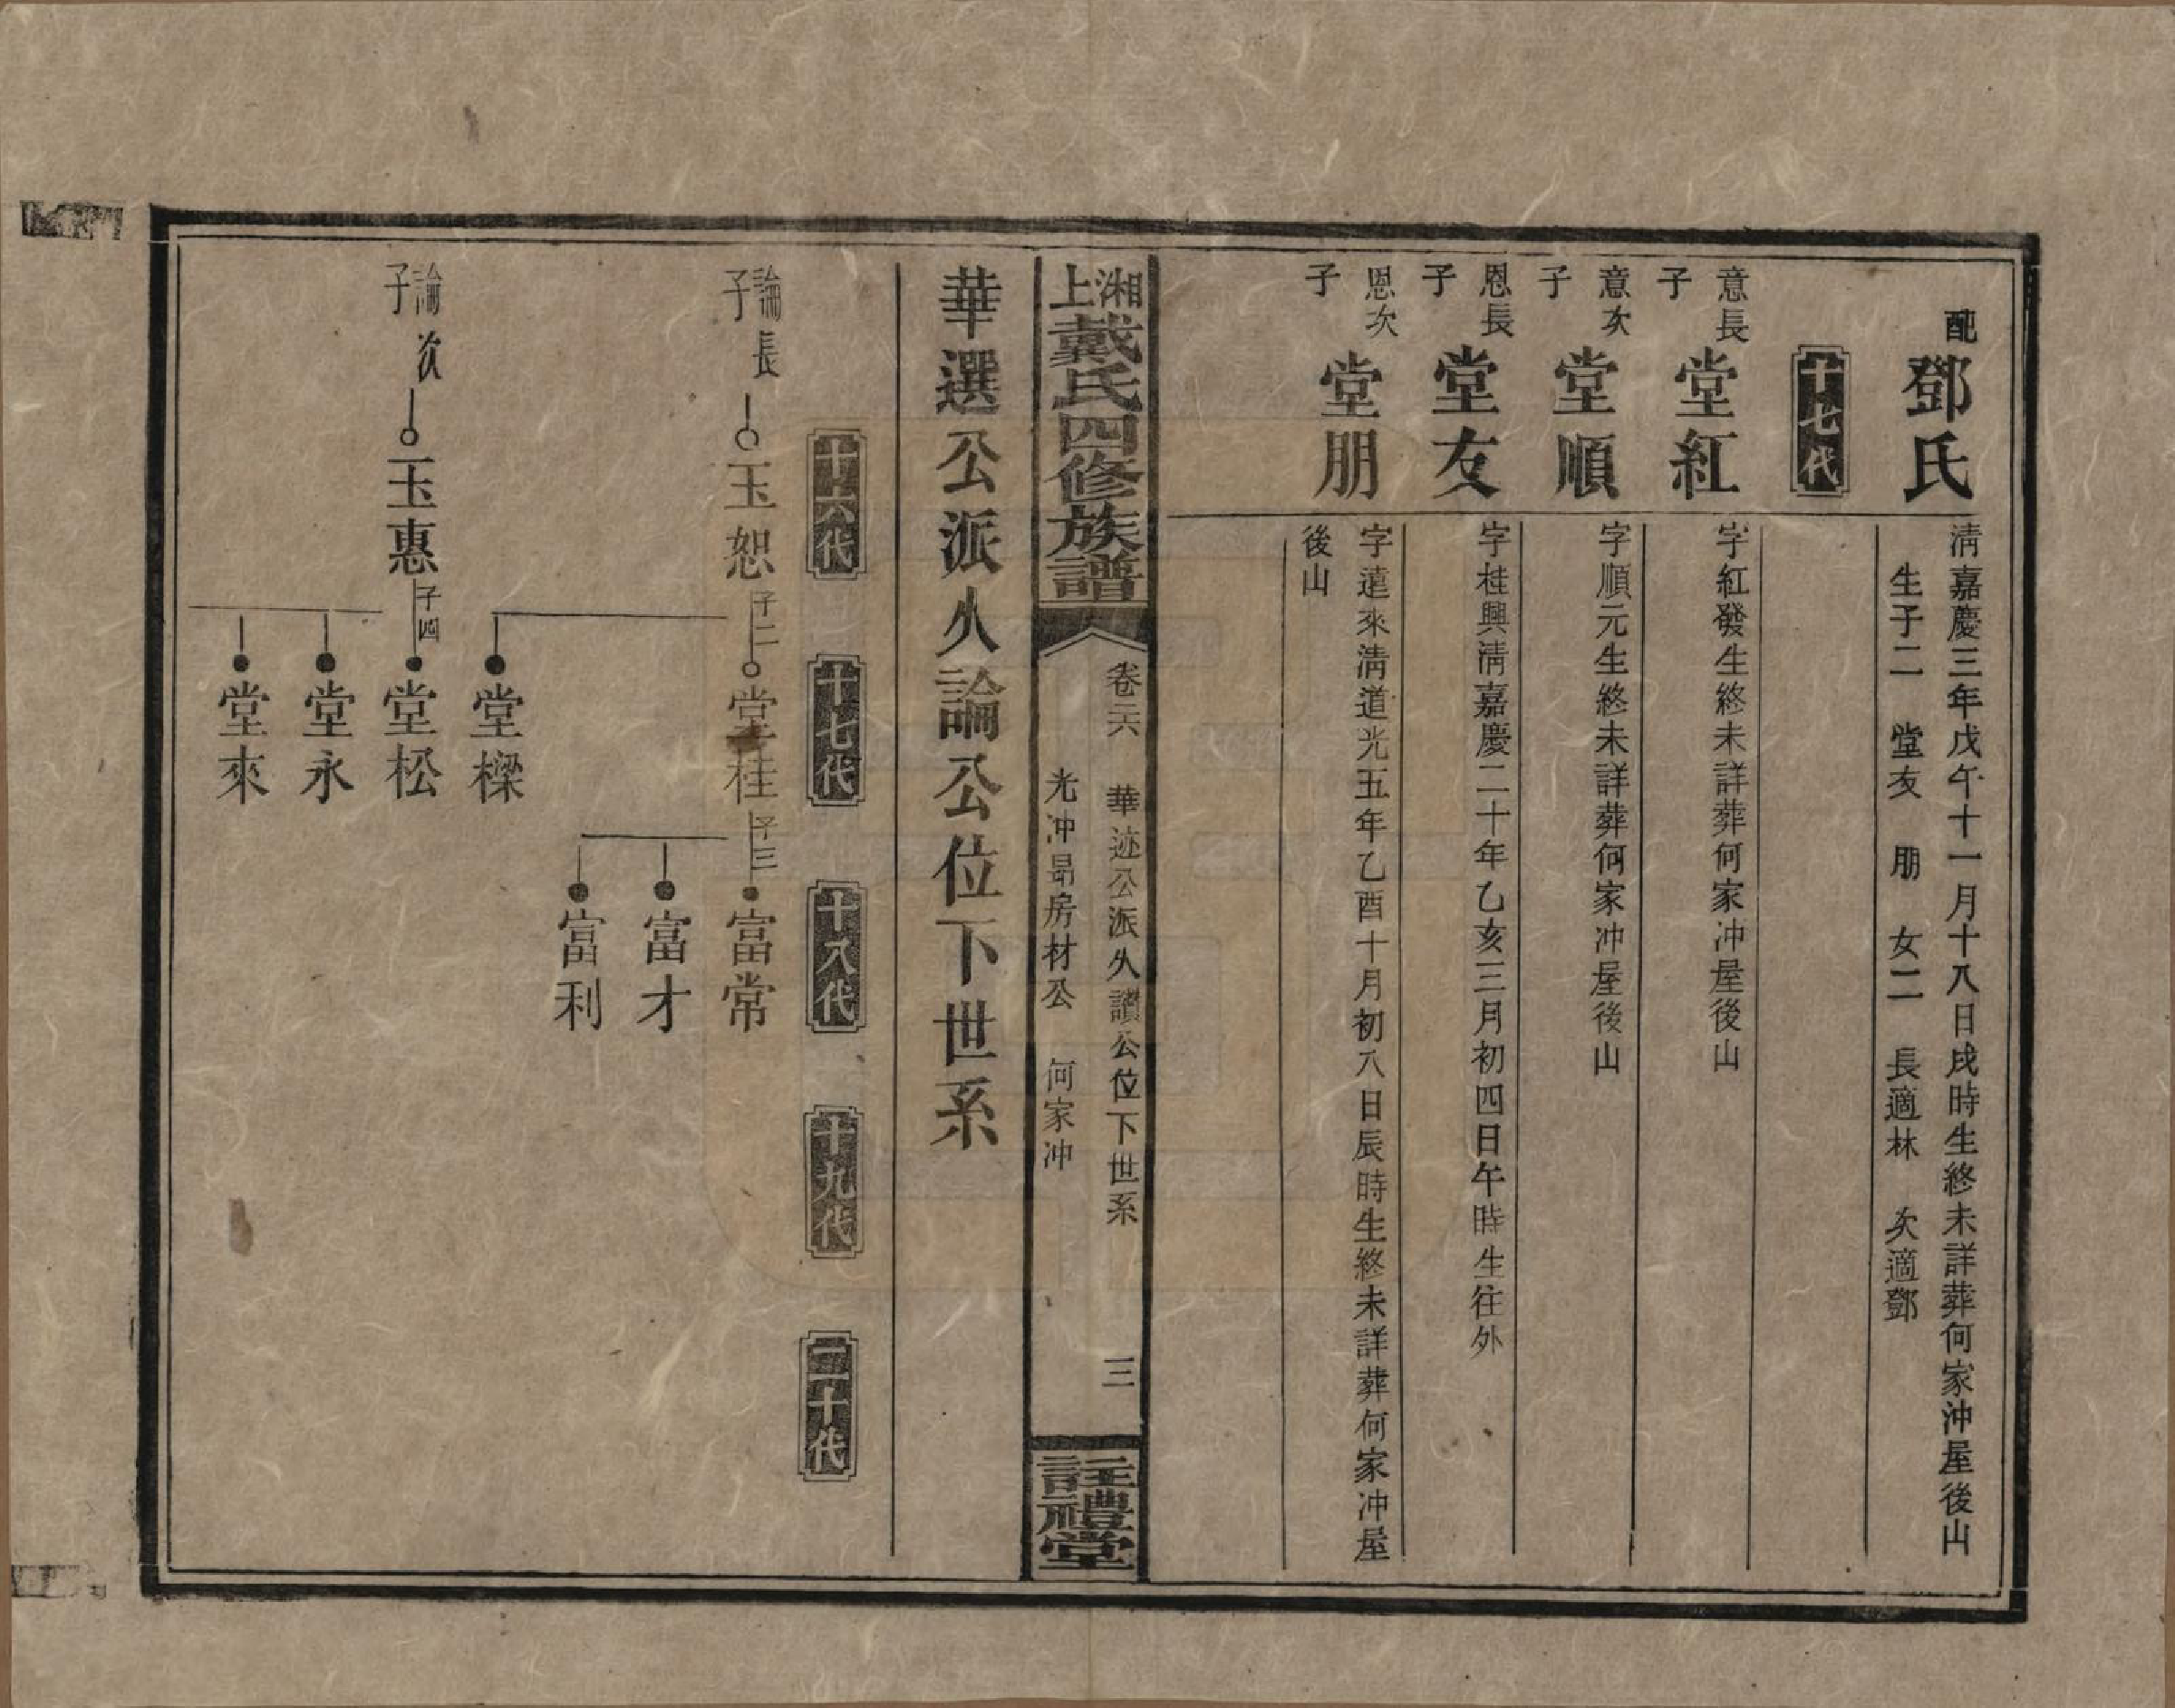 配
鄧氏
清嘉慶三年戊午十一月十八日戌時生終未詳葬何家沖屋後山
生子二 堂友 朋 女二 長適林 次適鄧
十七代
意長子
堂紅
字紅發生終未詳葬何家冲屋後山
意次子
堂順
字順元生終未詳葬何家冲屋後山
恩長子
堂友
字桂興清嘉慶二十年乙亥三月初四日午時生往外
恩次子
堂朋
字遠來清道光五年乙酉十月初八日辰時生終未詳葬何家冲屋
後山
湘上戴氏四修族譜
卷六 華迹公派久讚公位下世系
光冲昻房材公 何家冲
三
註禮堂
華選公派久論公位下世系
十六代
十七代
十八代
十九代
二十代
論長子
玉恕
子二
堂桂
子三
富常
富才
富利
堂樑
論次子
玉惠
子四
堂松
堂永
堂來